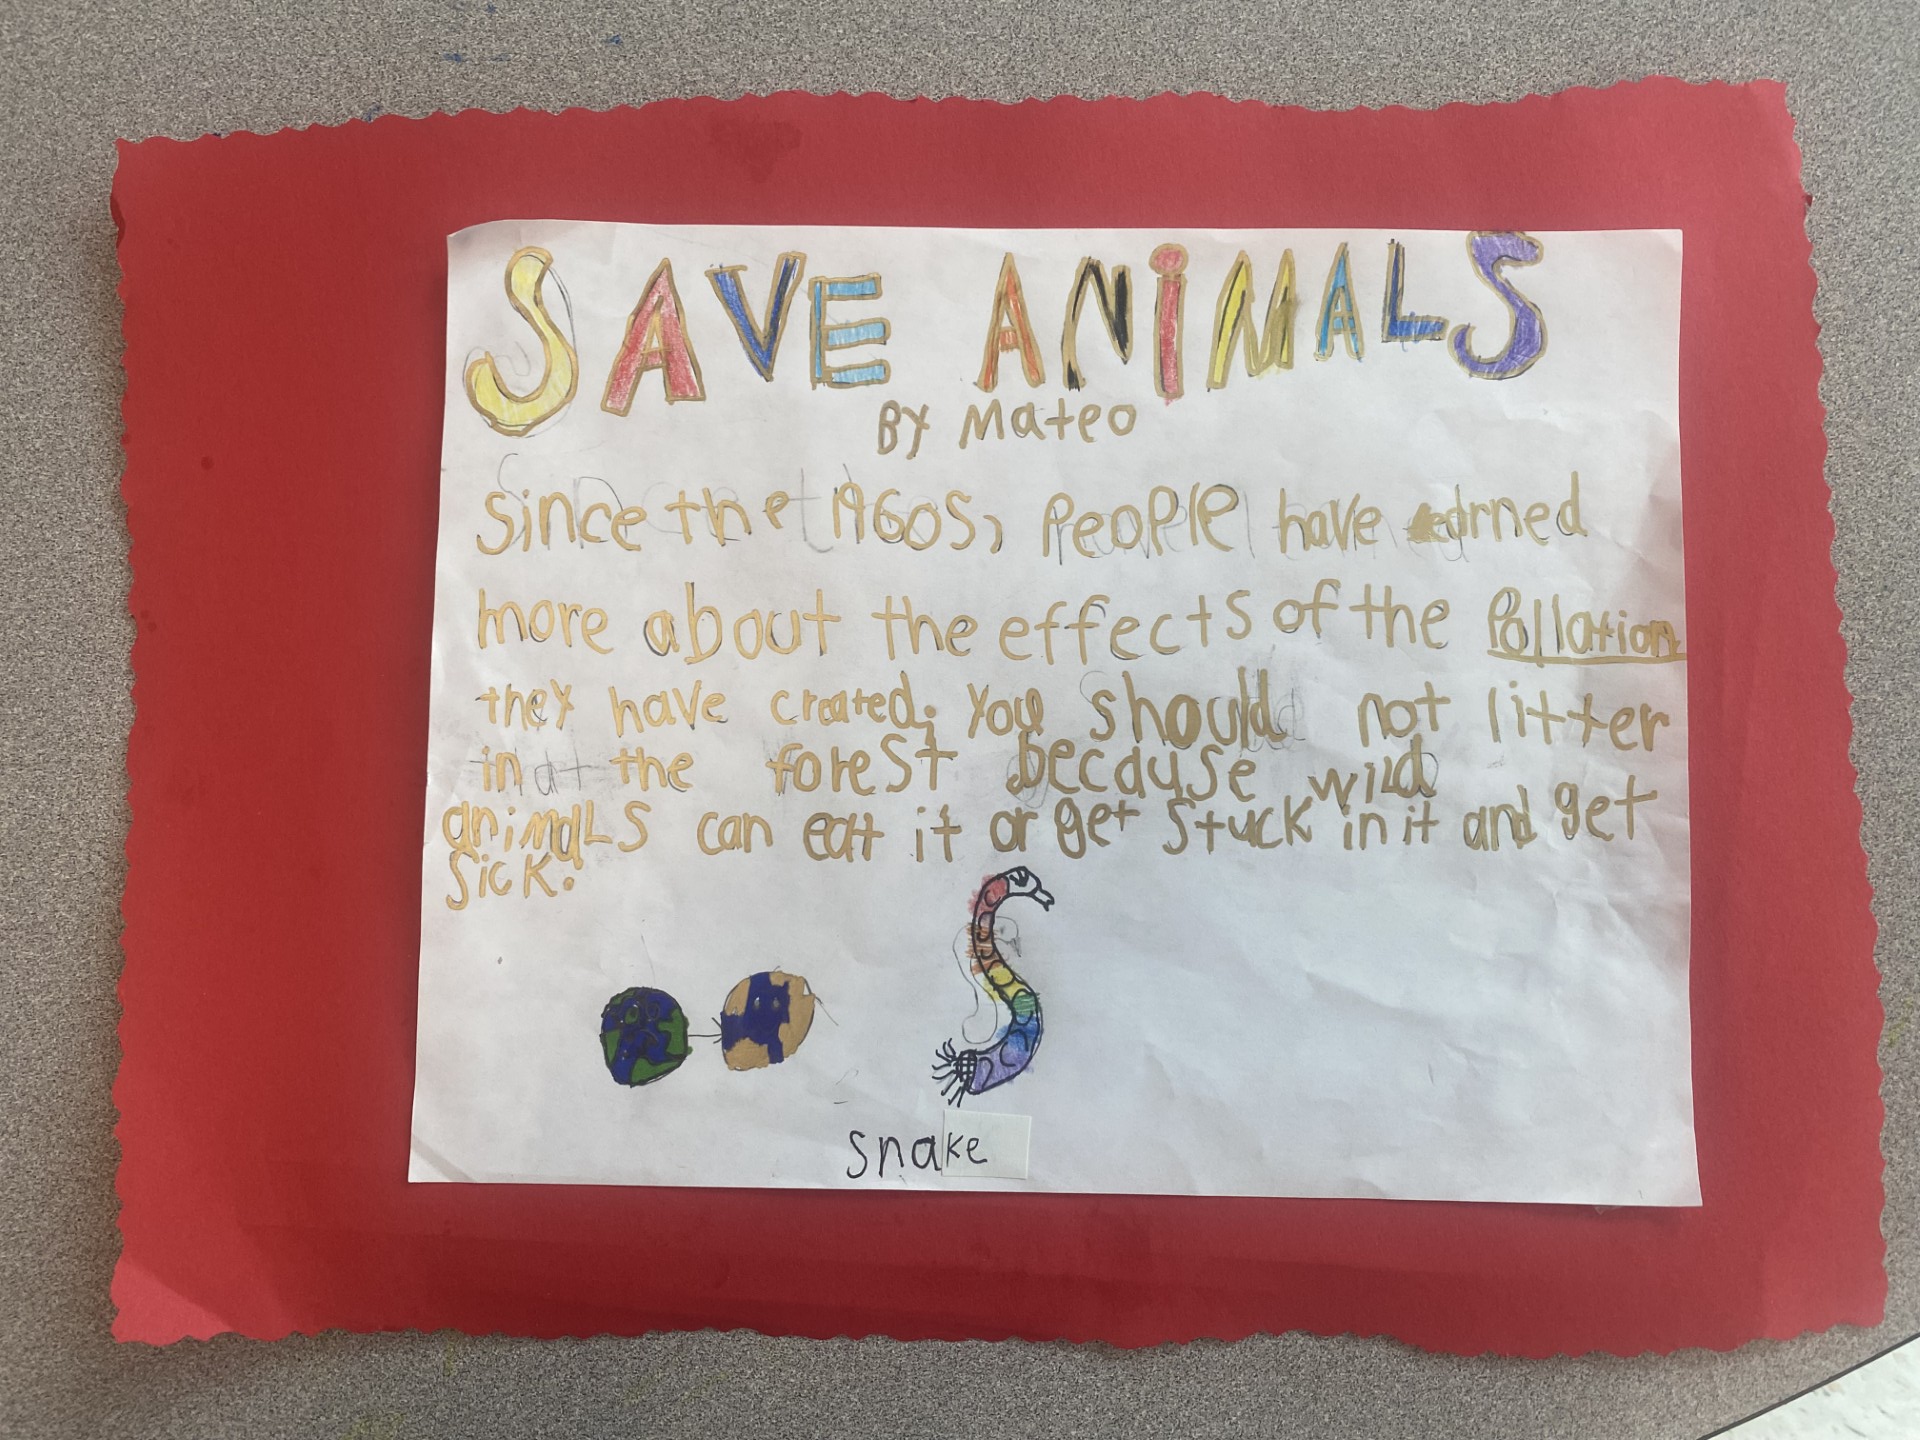 SAVE ANiMALS
BY Mateo
Since the 1960s, People have earned
more about the effects of the Pollation
they have created. You should not litter
in the forest because wild
animals can eat it or get stuck in it and get
sick.
snake